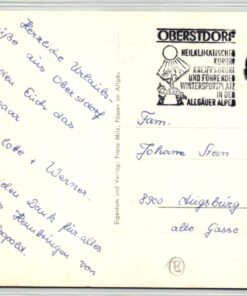 Herzliche Urlaubs-
grüße aus Oberstdorf
Euch das
paar
+ Werner.
den Dank für alles
von
Eigentum und Verlag: Franz Milz, Füssen im Allgäu
OBERSTDORF
HEILKLIMATISCHER
KURORT
KNEIPPKURORT
UND FÜHRENDER
WINTERSPORTPLATZ
IN DEN
ALLGÄUER ALPEN
Fam.
Johann Stein
8900 Augsburg
alte Gasse